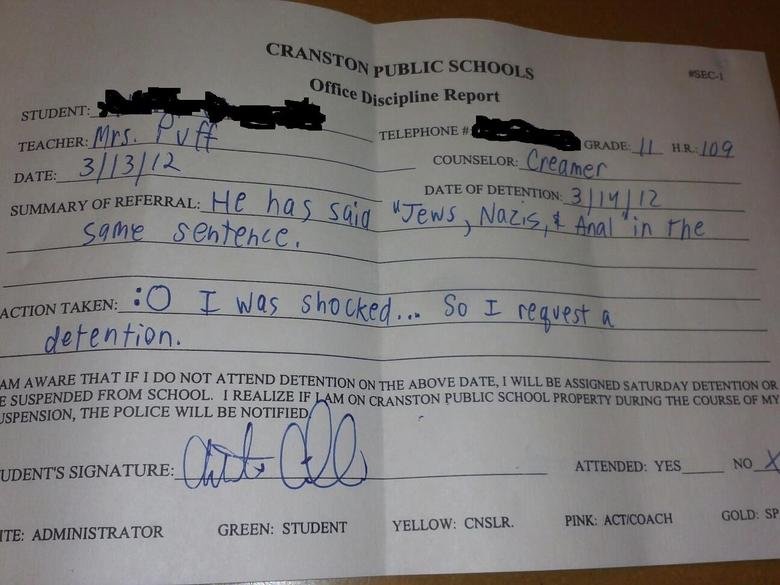 CRANSTON PUBLIC SCHOOLS
#SEC-1
Office Discipline Report
STUDENT:
TELEPHONE #
GRADE: 11 H.R.: 109
TEACHER: Mrs. Puff
COUNSELOR: Creamer
DATE: 3/13/12
DATE OF DETENTION: 3/14/12
SUMMARY OF REFERRAL: He has said "Jews, Nazis, & Anal" in the
same sentence.
ACTION TAKEN: :O I was shocked... So I request a
detention.
AM AWARE THAT IF I DO NOT ATTEND DETENTION ON THE ABOVE DATE, I WILL BE ASSIGNED SATURDAY DETENTION OR
E SUSPENDED FROM SCHOOL. I REALIZE IF I AM ON CRANSTON PUBLIC SCHOOL PROPERTY DURING THE COURSE OF MY
USPENSION, THE POLICE WILL BE NOTIFIED
UDENT'S SIGNATURE:
ATTENDED: YES NO X
ITE: ADMINISTRATOR GREEN: STUDENT YELLOW: CNSLR. PINK: ACT/COACH GOLD: SP